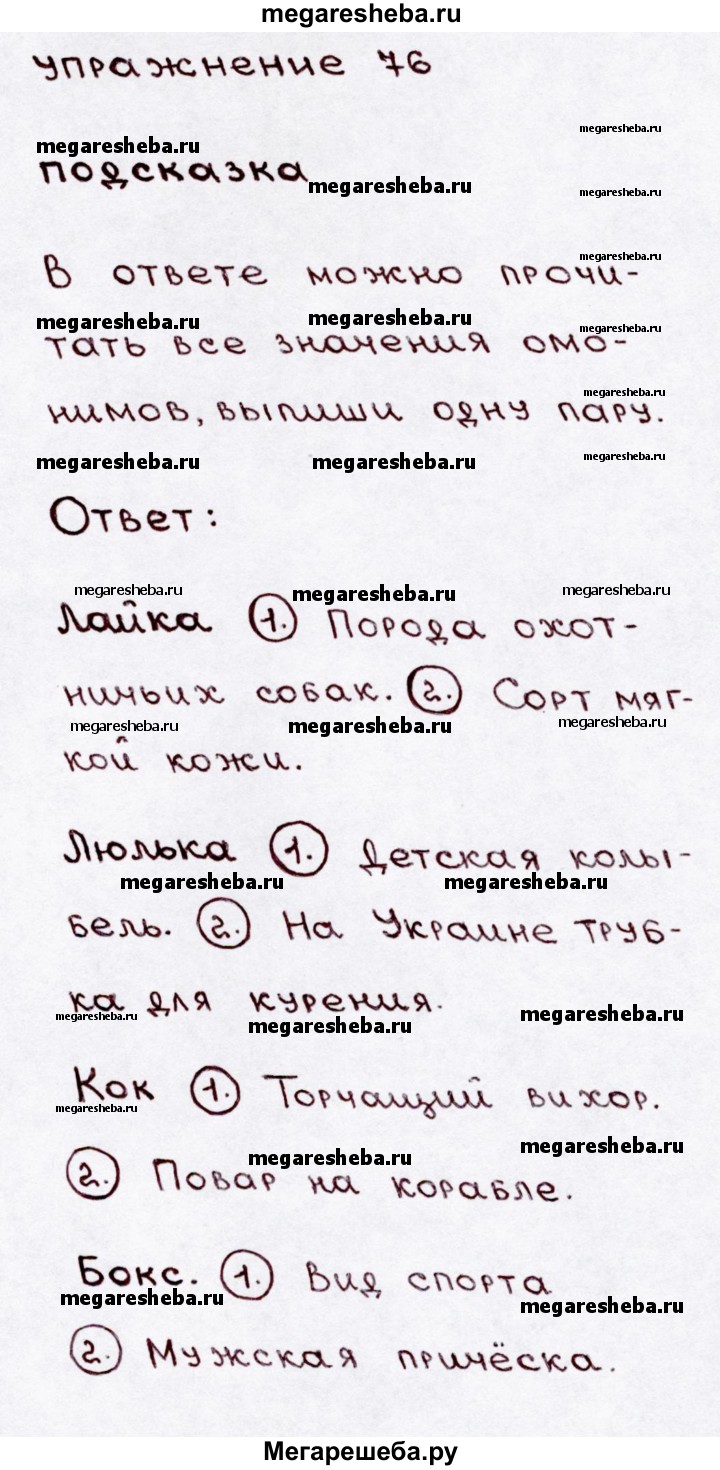 megaresheba.ru
упражнение 76
megaresheba.ru
megaresheba.ru
подсказка
megaresheba.ru
megaresheba.ru
megaresheba.ru
В ответе можно прочи-
megaresheba.ru
megaresheba.ru
megaresheba.ru
тать все значения омо-
megaresheba.ru
нимов, выпиши одну пару.
megaresheba.ru
megaresheba.ru
megaresheba.ru
Ответ:
megaresheba.ru
megaresheba.ru
megaresheba.ru
Лайка 1. Порода охот-
ничьих собак. 2. Сорт мяг-
megaresheba.ru
megaresheba.ru
megaresheba.ru
кой кожи.
Люлька 1. Детская колы-
megaresheba.ru
megaresheba.ru
бель. 2. На Украине труб-
ка для курения.
megaresheba.ru
megaresheba.ru
megaresheba.ru
Кок 1. Торчащий вихор.
megaresheba.ru
megaresheba.ru
megaresheba.ru
2. Повар на корабле.
Бокс. 1. Вид спорта
megaresheba.ru
megaresheba.ru
2. Мужская причёска.
Мегарешеба.ру